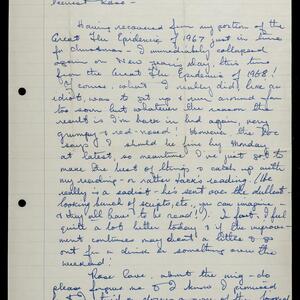 Dearest Rose -
Having recovered from my portion of the
Great Flu Epidemic of 1967 just in time
for Christmas - I immediately collapsed
again on New Years day, this time
from the Great Flu Epidemic of 1968!
Of course, what I really did, like an
idiot, was to get up & run around far
too soon but whatever the reason the
result is I'm back in bed again, very
grumpy & red-nosed! However the Doc
says I should be fine by Monday
at latest, so meantime I've just got to
make the best of things, & catch up with
my reading - or rather Dick's reading! (He
really is a sadist - he's sent over the dullest
looking bunch of scripts, etc., you can imagine -
& they all have to be read!!). In fact, I feel
quite a lot better today & if the improve-
ment continues may cheat a little & go
out for a drink or something over the
weekend!
Rose love, about the - do
please forgive me to I know I promised